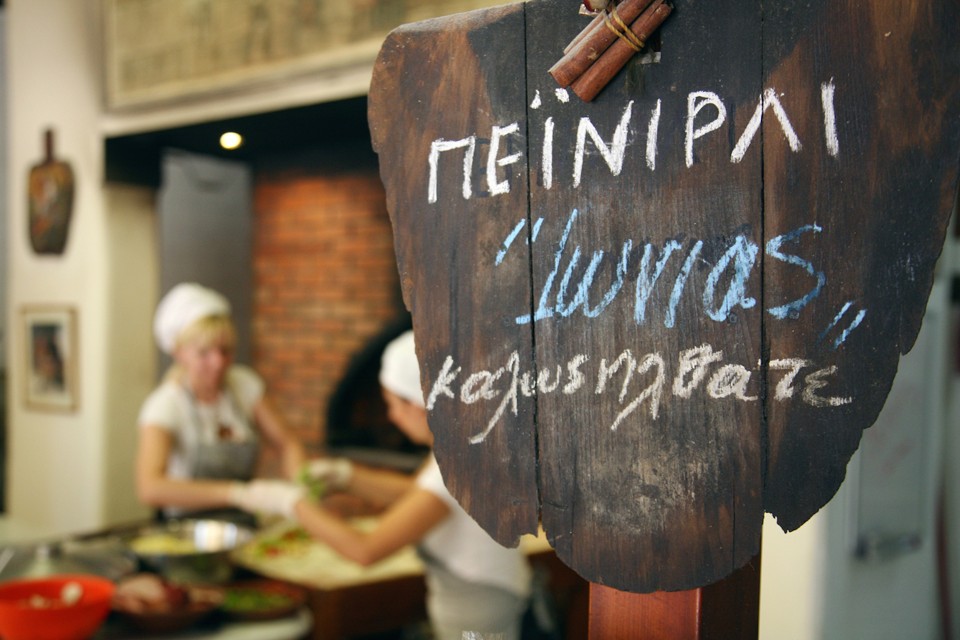 ΠΕΪΝΙΡΛΙ
"Ιωνιας"
καλωςηλθατε